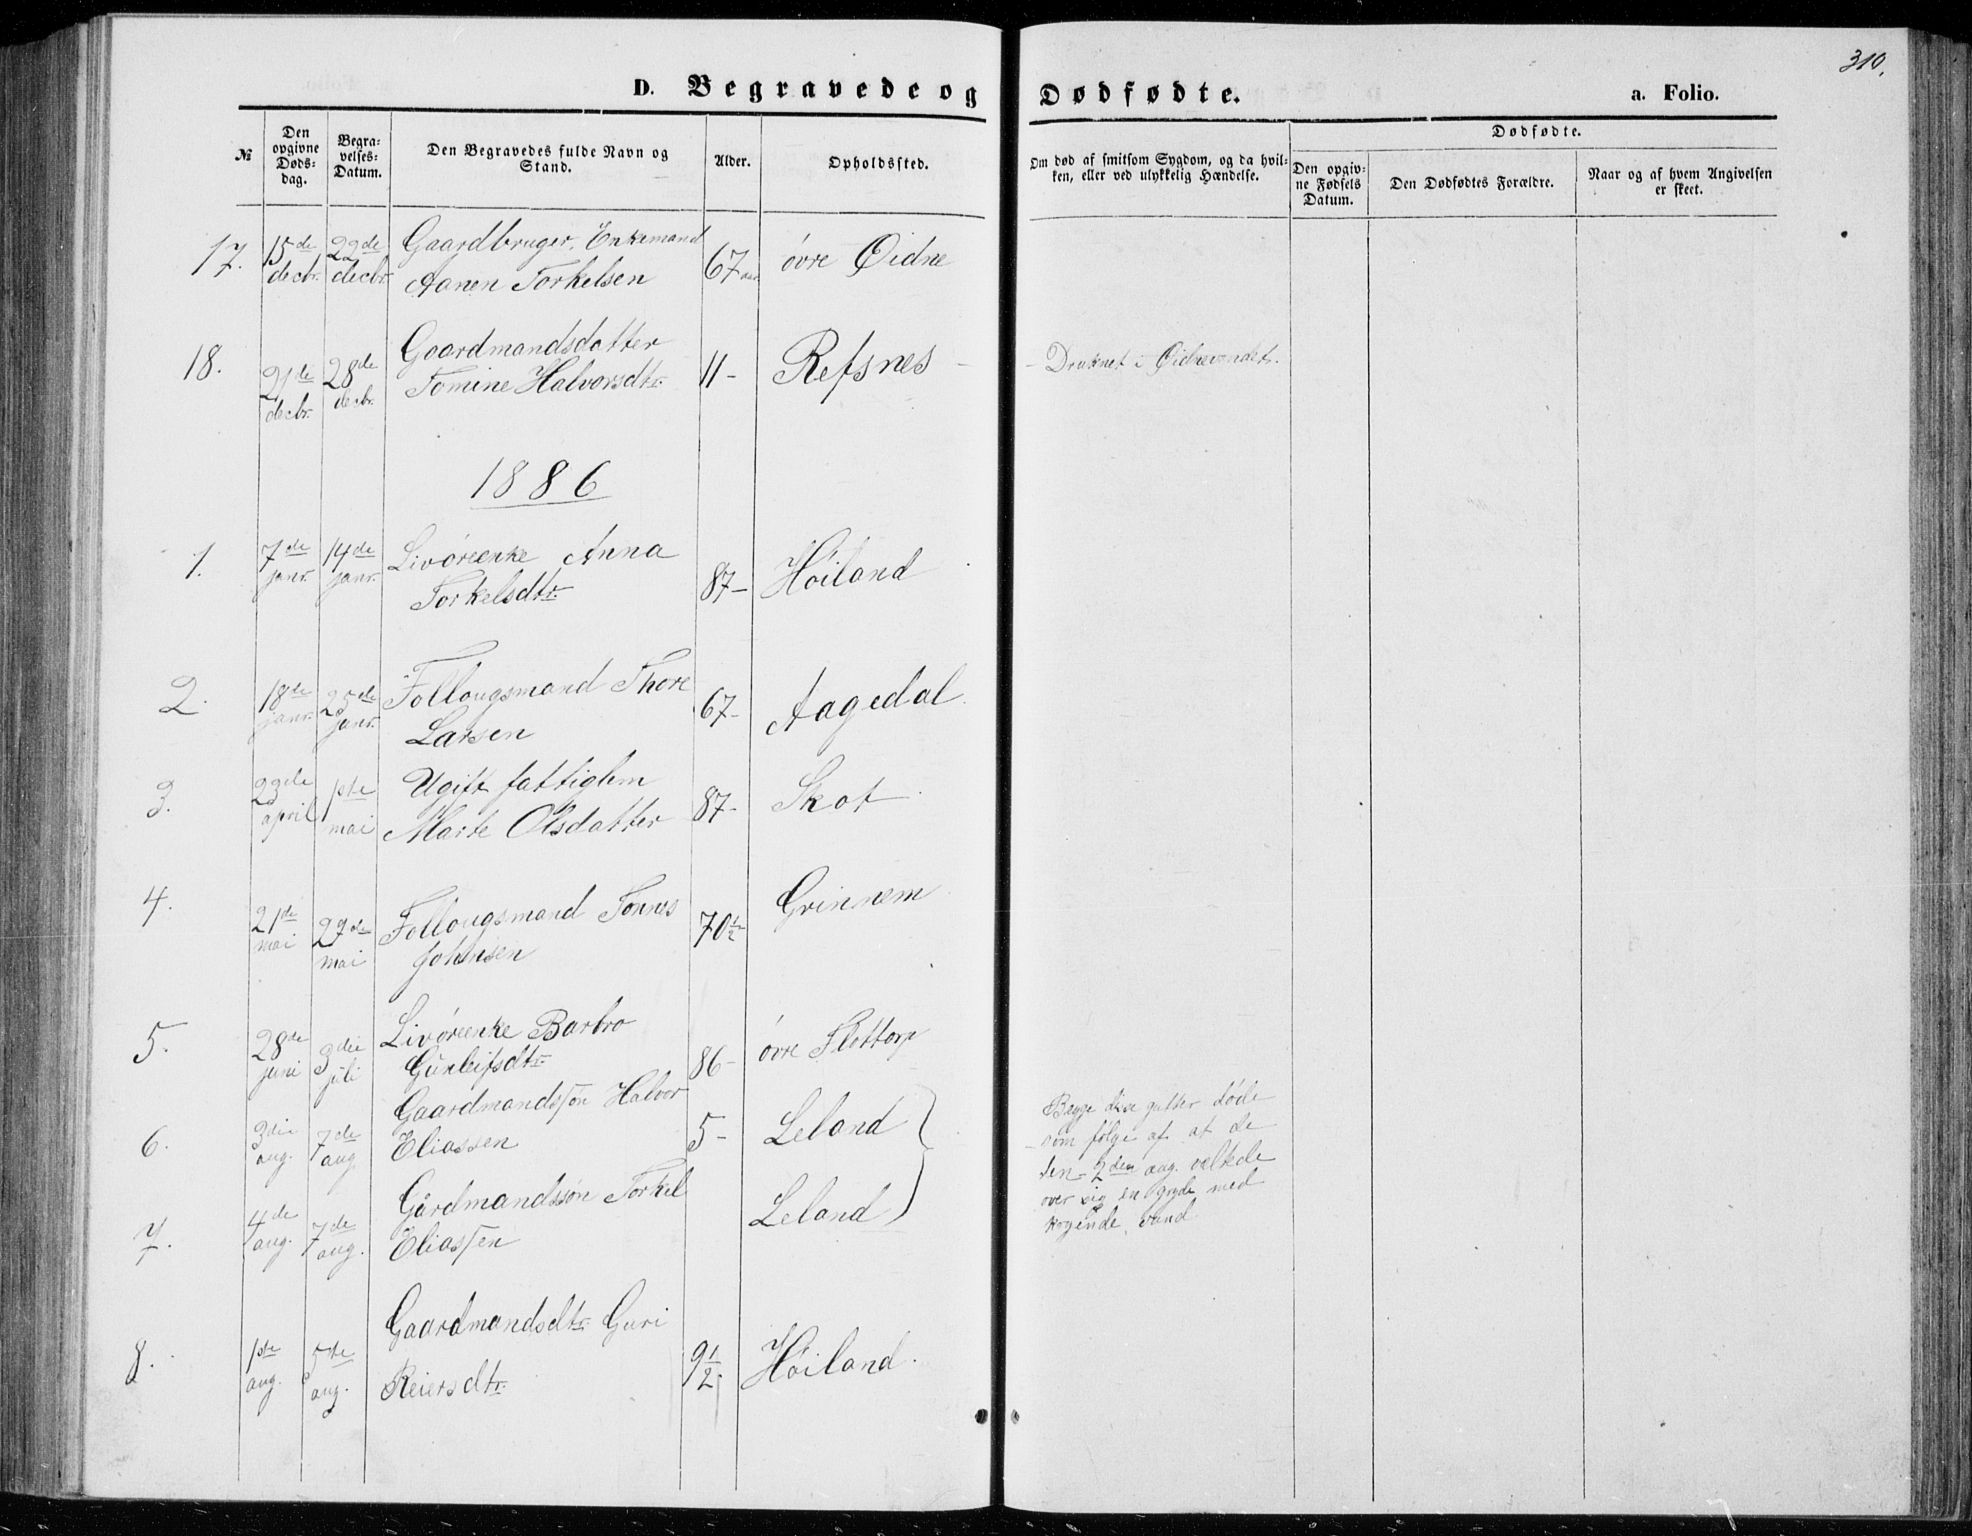 310.
D. Begravede og Dødfødte. a. Folio.
№
Den opgivne Døds-dag.
Begra-velses-Datum.
Den Begravedes fulde Navn og Stand.
Alder.
Opholdssted.
Om død af smitsom Sygdom, og da hvil-ken, eller ved ulykkelig Hændelse.
Dødfødte.
Den opgiv-ne Fødsels Datum.
Den Dødfødtes Forældre.
Naar og af hvem Angivelsen er skeet.
17. 15de decbr. 22de decbr. Gaardbruger, Enkemand
Aanen Torkelsen 67 aar øvre Øidne
18. 21de decbr. 28de decbr. Gaardmandsdatter
Tomine Halvorsdtr. 11 - Refsnes - - Druknet i Øidnevandet.
1886
1. 7de janr. 14de janr. Livøreenke Anna
Torkelsdtr. 87 - Høiland
2. 18de janr. 25de janr. Follougsmand Thore
Larsen 67 - Aagedal
3. 23de april 1ste mai Ugift fattiglem
Marte Olsdatter 87 - Skot
4. 21de mai 27de mai Follougsmand Tønnes
Johnsen 70 1/2 Grinnem
5. 28de juni 3die juli Livøreenke Barbro
Gunleifsdtr. 86 - øvre Flottorp
6. 3die aug. 7de aug Gaardmandssøn Halvor
Eliassen 5 - Leland
7. 4de aug. 7de aug. Gårdmandssøn Torkel
Eliassen Leland
Begge disse gutter døde
som følge af at de
den 2den aug. veltede
over sig en gryde med
kogende vand.
8. 1ste aug. 5te aug. Gaardmandsdtr. Guri
Reiersdtr. 9 1/2 Høiland.